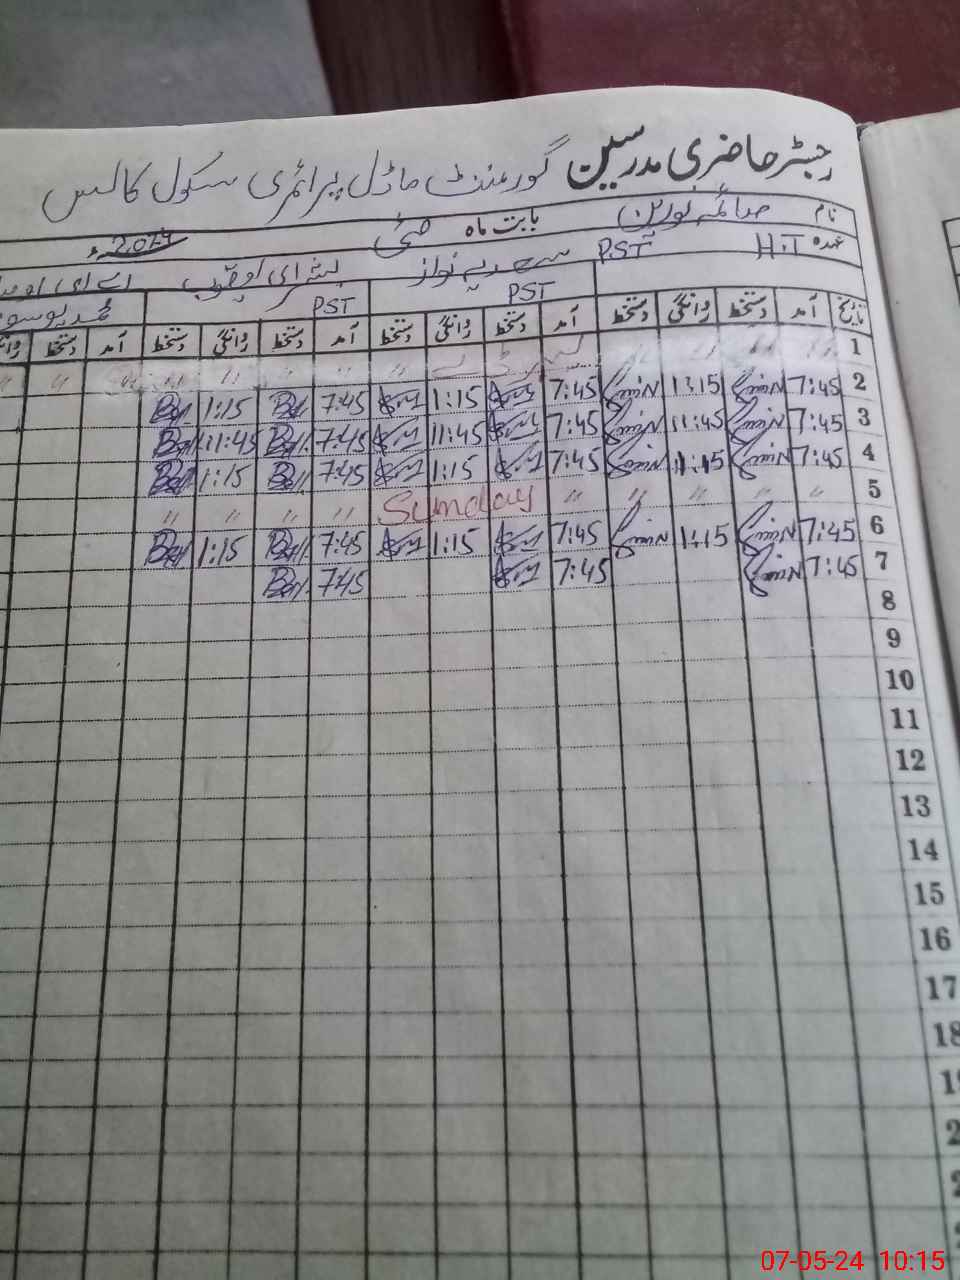 رجسٹر حاضری مدرسین گورمننٹ ماڈل پرائمری سکول کالس
نام صائمہ نورین بابت ماہ مئی 2024ء
عہدہ H.T PST سعدیہ نواز بشریٰ یعقوب
PST PST محمد یوسف
تاریخ آمد دستخط روانگی دستخط آمد دستخط روانگی دستخط آمد دستخط روانگی دستخط آمد دستخط
1 لیبر ڈے
2 7:45 1:15 7:45 1:15 7:45 1:15
3 7:45 11:45 7:45 11:45 7:45 11:45
4 7:45 1:15 7:45 1:15 7:45 1:15
5 " " " " Sunday " " " "
6 7:45 1:15 7:45 1:15 7:45 1:15
7 7:45 7:45 7:45
8
9
10
11
12
13
14
15
16
17
18
07-05-24 10:15